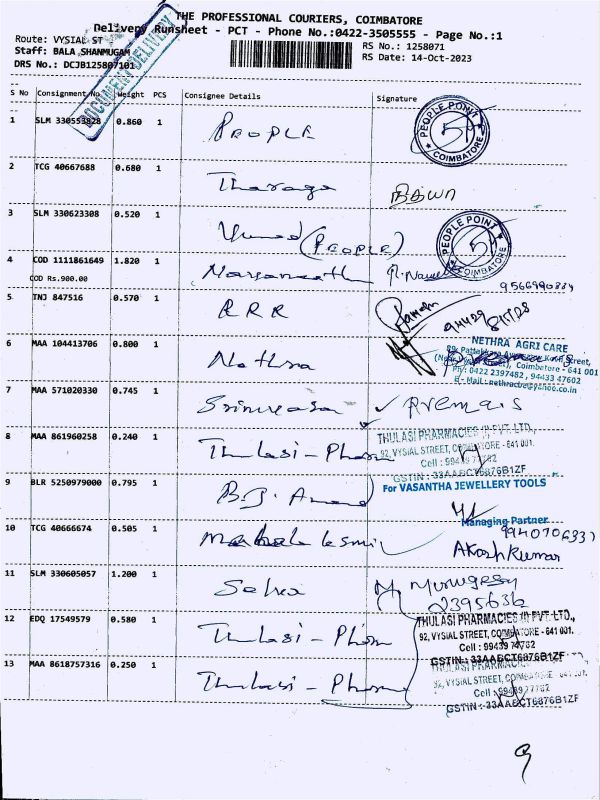 THE PROFESSIONAL COURIERS, COIMBATORE
Delivery Runsheet - PCT - Phone No.:0422-3505555 - Page No.:1
Route: VYSIAL ST
RS No.: 1258071
Staff: BALA SHANMUGAM
RS Date: 14-Oct-2023
DRS No.: DCJB125807101
DOCUMENT DELIVERY
S No Consignment No Weight PCS Consignee Details Signature
1 SLM 330553828 0.860 1 PEOPLE
PEOPLE POINT COIMBATORE
2 TCG 40667688 0.680 1 Tharaga நித்யா
3 SLM 330623308 0.520 1 (PEOPLE)
PEOPLE POINT COIMBATORE
4 COD 1111861649 1.820 1
COD Rs.900.00
5 TNJ 847516 0.570 1 RRR
6 MAA 104413706 0.800 1 Nethra
NETHRA AGRI CARE
Street,
Coimbatore - 641 001
Ph: 0422 2397482, 94433 47602
E-Mail: nethracbe@yahoo.co.in
7 MAA 571020330 0.745 1
8 MAA 861960258 0.240 1 Thulasi - Pharm
THULASI PHARMACIES (I) PVT. LTD.,
92, VYSIAL STREET, COIMBATORE - 641 001.
Cell :
GSTIN : 33AABCT6876B1ZF
9 BLR 5250979000 0.795 1 B.J. Anand
For VASANTHA JEWELLERY TOOLS
Managing Partner
10 TCG 40666674 0.505 1
Akosh Kumar
11 SLM 330605057 1.200 1
M. Murugesan
2395636
12 EDQ 17549579 0.580 1 Thulasi - Pharm
THULASI PHARMACIES (I) PVT. LTD.,
92, VYSIAL STREET, COIMBATORE - 641 001.
Cell :
GSTIN : 33AABCT6876B1ZF
13 MAA 8618757316 0.250 1 Thulasi - Pharm
THULASI PHARMACIES
92, VYSIAL STREET, COIMBATORE - 641 001.
Cell :
GSTIN : 33AABCT6876B1ZF